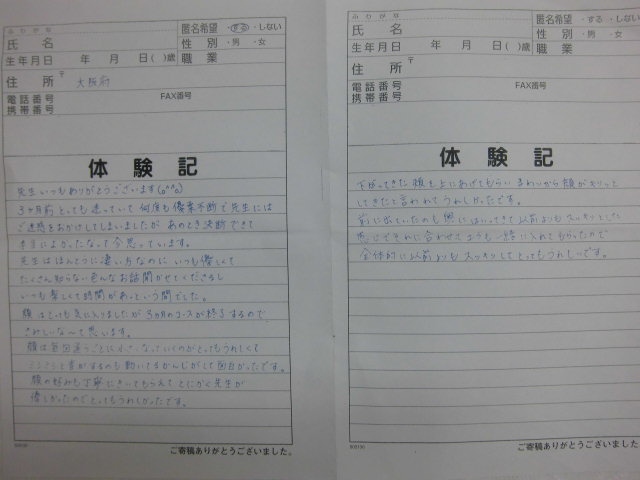 ふりがな
匿名希望 ・する ・しない
氏名
性別 ・男 ・女
生年月日 年 月 日( )歳
職業
住所 〒
大阪府
電話番号
携帯番号
FAX番号
体験記
先生いつもありがとうございます(o^^o)
3ヶ月前とても迷っていて何度も優柔不断で先生には
ご迷惑をおかけしてしまいましたが あのとき決断できて
本当によかったなって今思っています。
先生はほんとうに凄い方なのに いつも優しくて
たくさん知らない色んなお話聞かせてくださるし
いつも楽しくて時間があっという間でした。
顔はとても気に入りましたが3ヵ月のコースが終了するので
さみしいな〜て思います。
顔は毎回通うごとに小さくなっていくのがとってもうれしくて
ミシミシと音がするのも動いてるかんじがして面白かったです。
顔の好みも丁寧にきいてもらえてとにかく先生が
優しかったのでとってもうれしかったです。
ご寄稿ありがとうございました。
ふりがな
匿名希望 ・する ・しない
氏名
性別 ・男 ・女
生年月日 年 月 日( )歳
職業
住所 〒
電話番号
携帯番号
FAX番号
体験記
下がってきた頬を上にあげてもらい まわりから顔がキリッと
してきたと言われてうれしかったです。
前に出ていたのも奥にはいってきて以前よりもスッキリとした
感じでそれに合わせて
も一緒に入れてもらったので
全体的に以前よりもスッキリしてとってもうれしいです。
ご寄稿ありがとうございました。